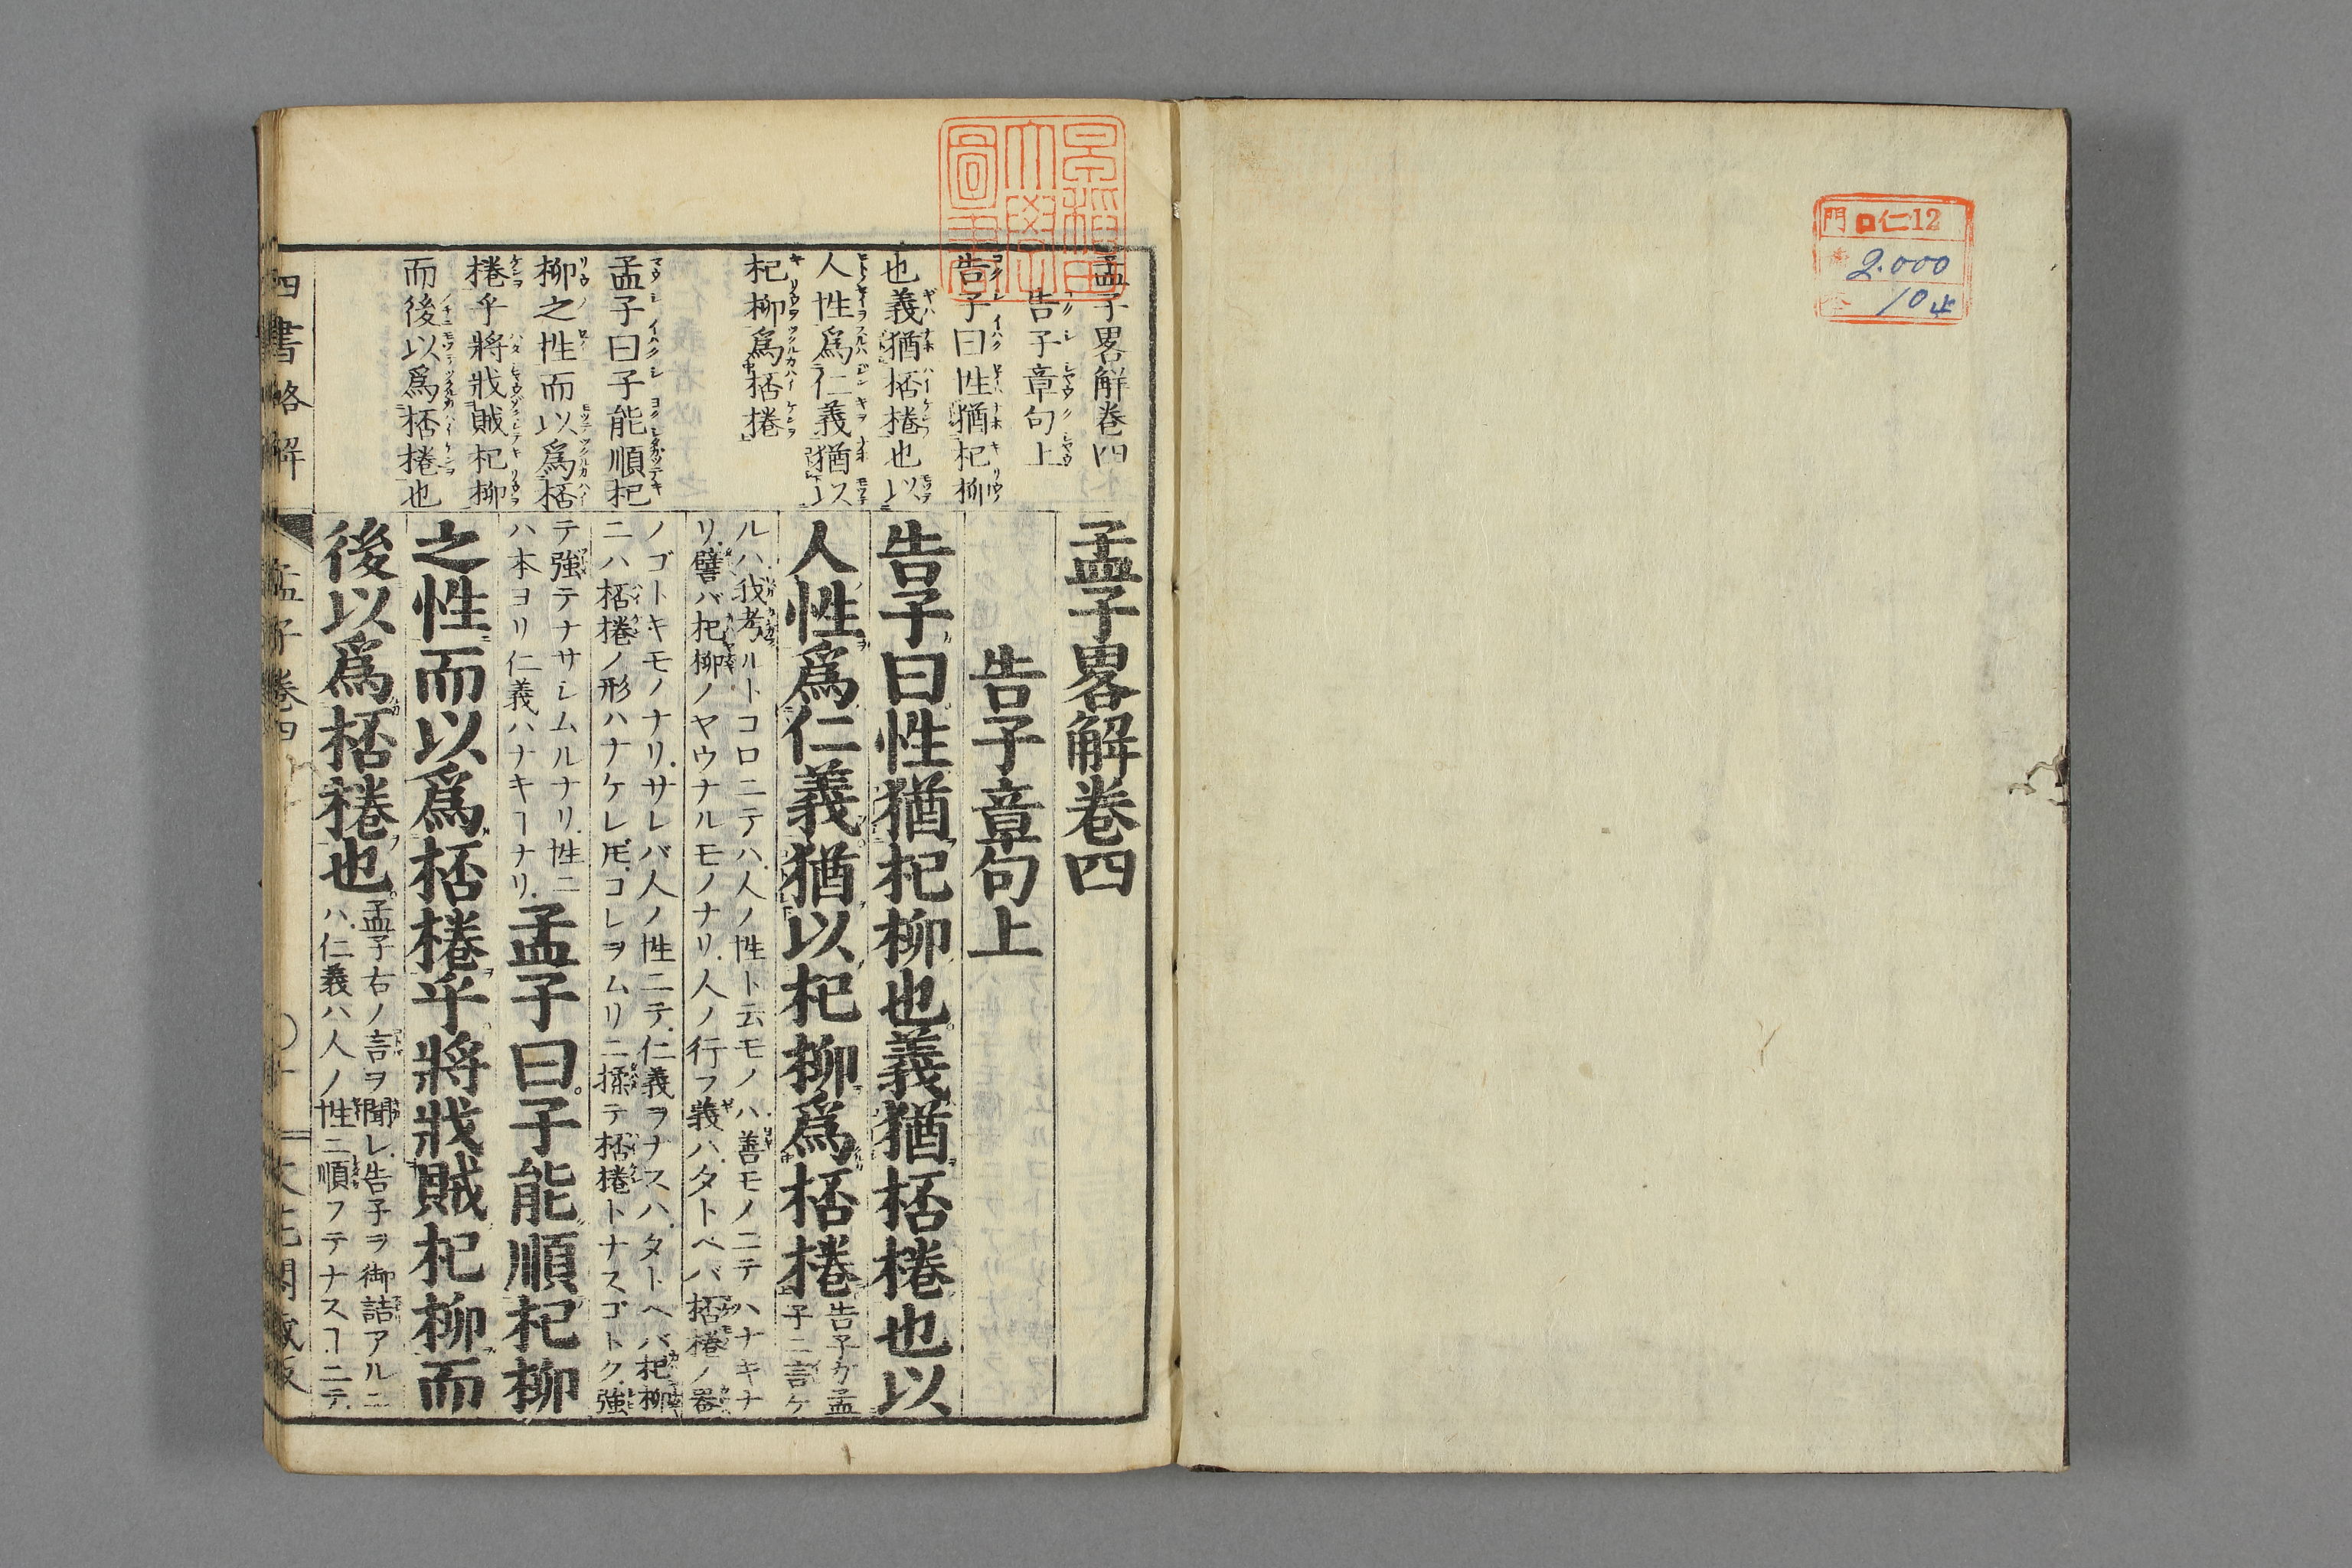 門 ロ仁12
2.000
10止
早稲田大學圖書
孟子畧解卷四
告子章句上
告子曰性猶杞柳
也義猶桮棬也以
人性爲仁義猶以
杞柳爲桮棬
孟子曰子能順杞
柳之性而以爲桮
棬乎將戕賊杞柳
而後以爲桮棬也
孟子畧解卷四
告子章句上
告子曰性猶杞柳也義猶桮棬也以
人性爲仁義猶以杞柳爲桮棬
告子ガ孟
子ニ言ケ
ルハ我考ルトコロニテハ人ノ性ト云モノハ善モノニテハナキナ
リ譬バ杞柳ノヤウナルモノナリ人ノ行フ義ハタトベバ桮棬ノ器
ノゴトキモノナリサレバ人ノ性ニテ仁義ヲナスハタトヘバ杞柳
ニハ桮棬ノ形ハナケレ𪜈コレヲムリニ揉テ桮棬トナスゴトク強
テ強テナサシムルナリ性ニ
ハ本ヨリ仁義ハナキヿナリ
孟子曰子能順杞柳
之性而以爲桮棬乎將戕賊杞柳而
後以爲桮棬也
孟子右ノ言ヲ聞レ告子ヲ御詰アルニ
ハ仁義ハ人ノ性ニ順フテナスヿニテ
四書略解
孟子卷四